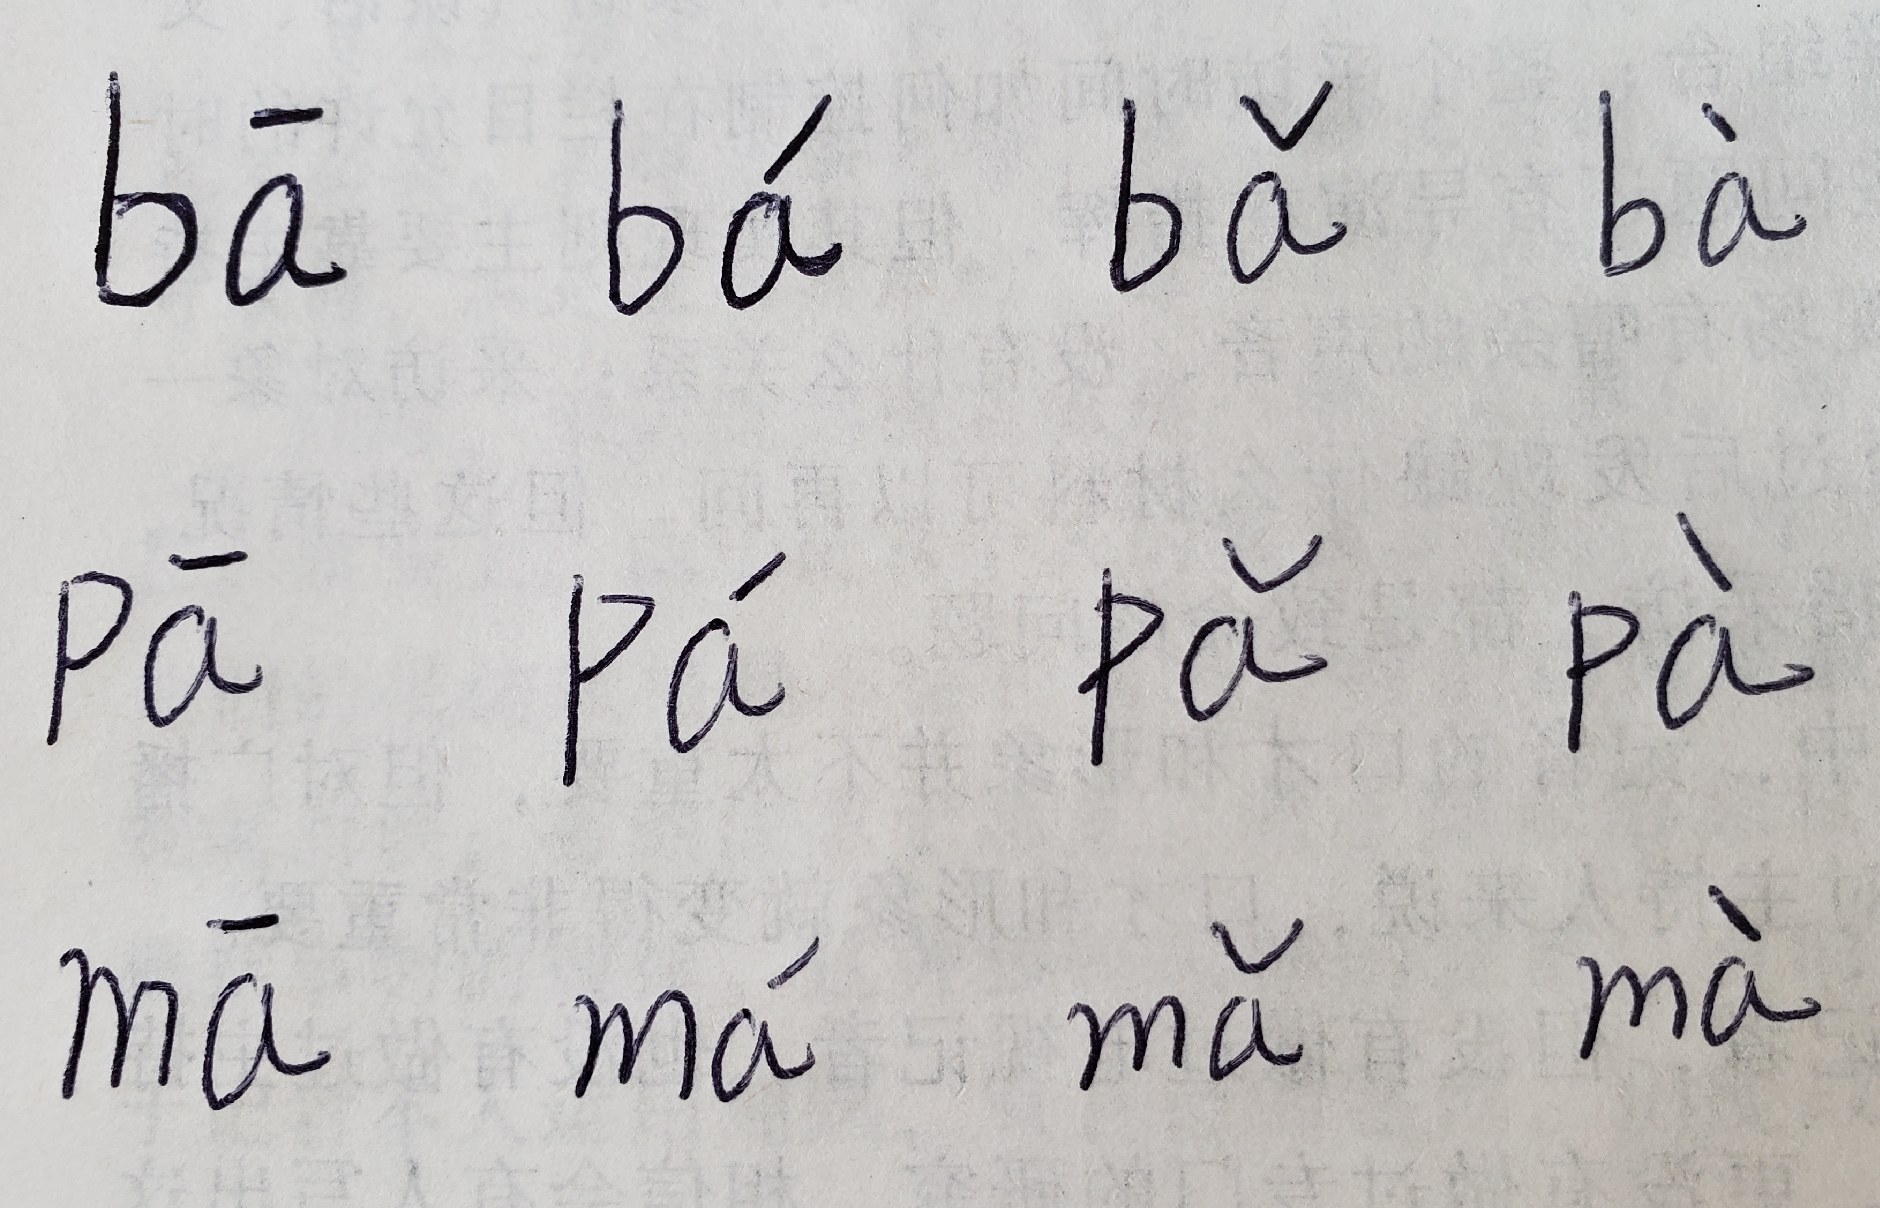 bā bá bǎ bà
pā pá pǎ pà
mā má mǎ mà